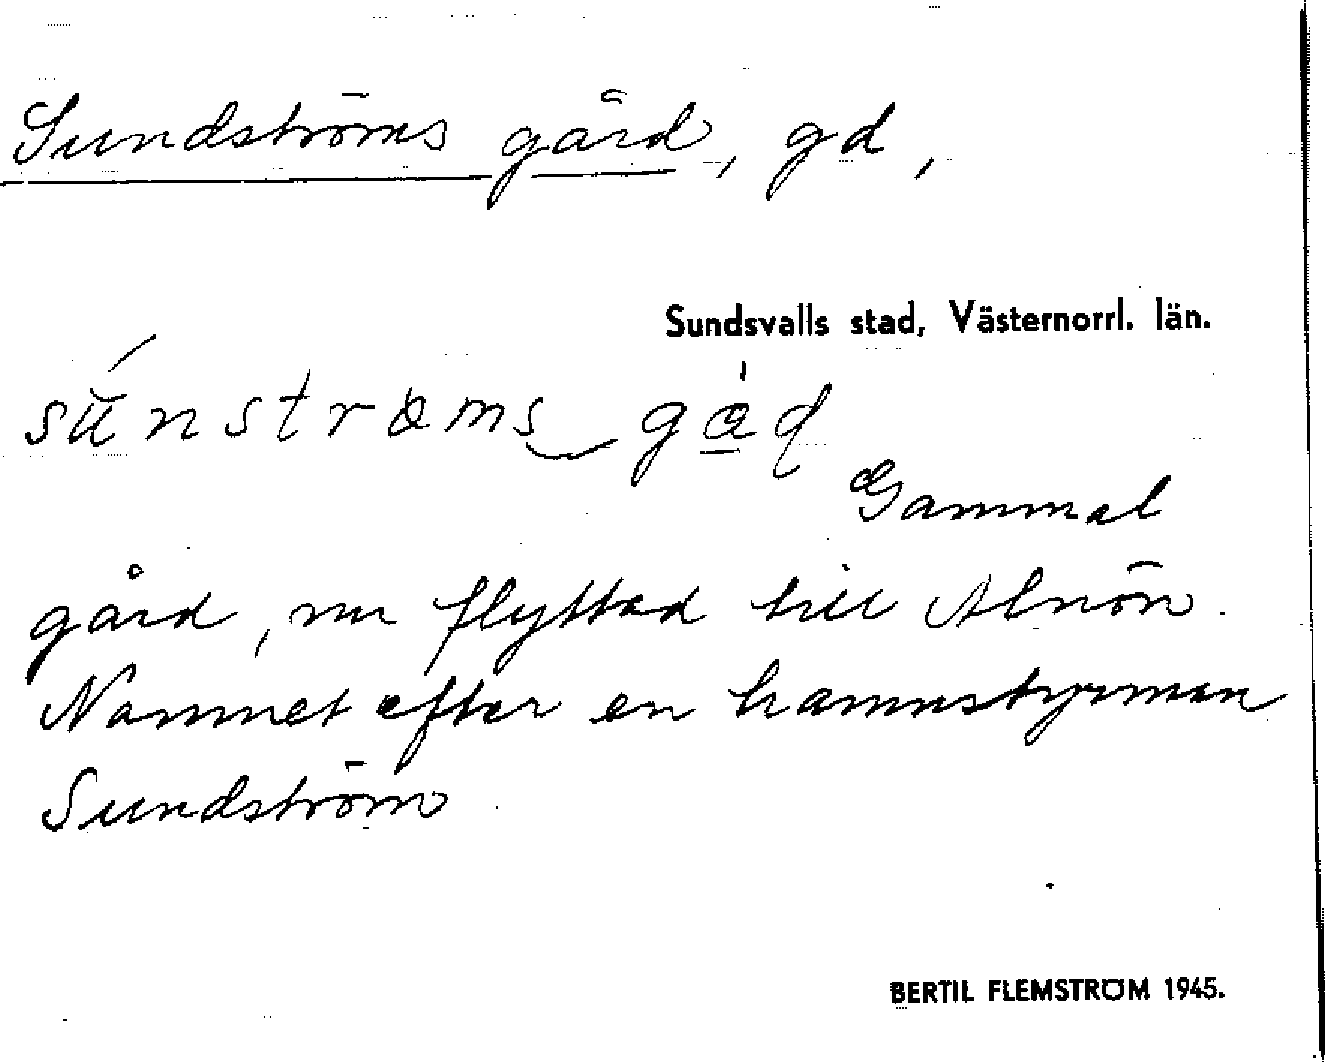 Sundströms gård, gd,
Sundsvalls stad, Västernorrl. län.
Gammal
gård, nu flyttad till Alnön.
Namnet efter en hamnstyrman
Sundström
BERTIL FLEMSTRÖM 1945.